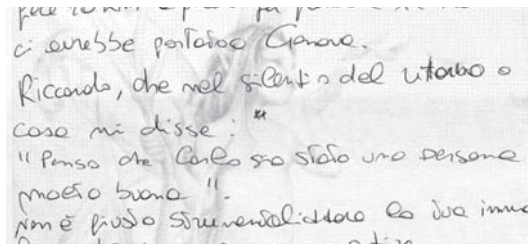 ci avrebbe portato Genova.
Riccardo, che nel silenzio del ritorno a
casa mi disse:
"Penso che Carlo sia stato una persona
molto buona".
Non è giusto strumentalizzare la sua